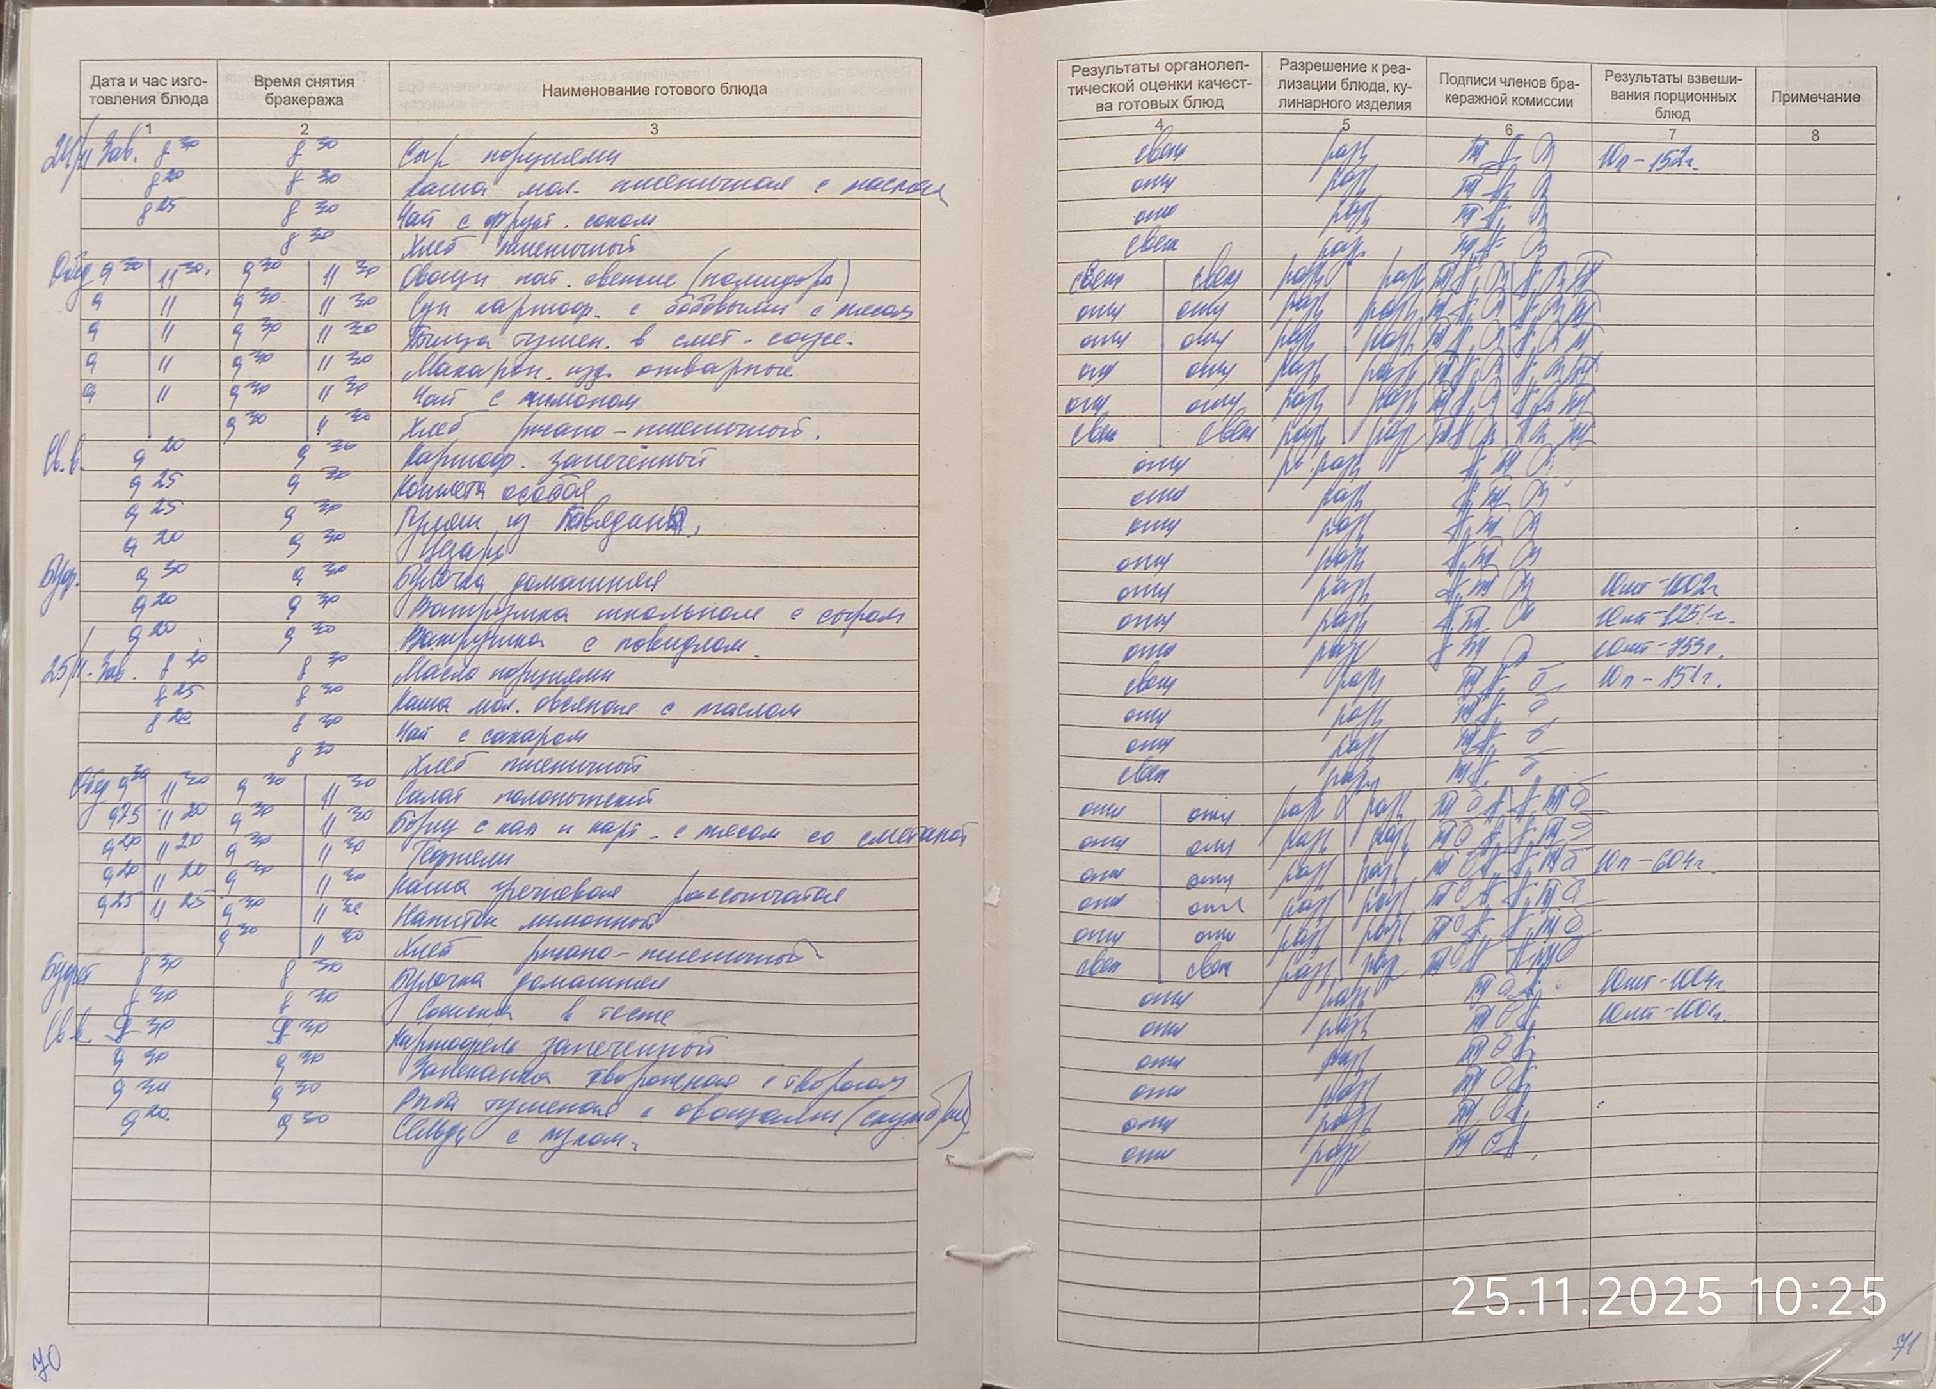 Дата и час изго-
товления блюда
Время снятия
бракеража
Наименование готового блюда
1 2 3
24/11 Зав. 8 30 8 30 Сыр порциями
8 20 8 30 Каша мол. пшеничная с маслом
8 25 8 30 Чай с фрукт. соком
8 30 Хлеб пшеничный
Обед 9 30 11 30. 9 30 11 30 Овощи нат. свежие (помидора)
9 11 9 30 11 30 Суп картоф. с бобовыми с мясом
9 11 9 30 11 30 Птица тушен. в смет. соусе.
9 11 9 30 11 30 Макарон. изд. отварные
9 11 9 30 11 30 Чай с лимоном
9 30 11 30 Хлеб ржано-пшеничный.
Св.в. 9 20 9 30 Картоф. запечённый
9 25 9 30 Котлета особая
9 25 9 30 Гуляш из говядины,
9 20 9 30 Цезарь
Буф. 9 30 9 30 Булочка домашняя
9 20 9 30 Ватрушка школьная с сыром
9 20 9 30 Ватрушка с повидлом
25/11. Зав. 8 20 8 30 Масло порциями
8 25 8 30 Каша мол. овсяная с маслом
8 20 8 30 Чай с сахаром
8 30 Хлеб пшеничный
Обед 9 20 11 20 9 30 11 30 Салат
9 25 11 20 9 30 11 30 Борщ с кап и карт. с мясом со сметаной
9 20 11 20 9 30 11 30 Тефтели
9 20 11 20 9 30 11 30 Каша гречневая рассыпчатая
9 25 11 25 9 30 11 30 Напиток лимонный
9 30 11 30 Хлеб ржано-пшеничный
Буфет 8 30 8 30 Булочка домашняя
8 30 8 30 Сосиска в тесте
Св.в. 9 30 9 30 Картофель запеченный
9 30 9 30 Запеканка творожная с творогом
9 20 9 30 Рыба тушеная с овощами (скумбрия)
9 20. 9 30 Сельдь с луком.
70
Результаты органолеп-
тической оценки качест-
ва готовых блюд
Разрешение к реа-
лизации блюда, ку-
линарного изделия
Подписи членов бра-
керажной комиссии
Результаты взвеши-
вания порционных
блюд
Примечание
4 5 6 7 8
свеж разр 10п-152г.
отл разр
отл разр
свеж разр
свеж свеж разр разр
отл отл разр разр
отл отл разр разр
отл отл разр разр
отл отл разр разр
свеж свеж разр разр
отл разр
отл разр
отл разр
отл разр
отл разр 10шт-1002г
отл разр 10шт-1251г.
отл разр 10шт-753г.
свеж разр 10п-151г.
отл разр
отл разр
свеж разр
отл отл разр разр
отл отл разр разр
отл отл разр разр 10п-604г.
отл отл разр разр
отл отл разр разр
свеж свеж разр разр
отл разр 10шт-1004г
отл разр
отл разр
отл разр
отл разр
отл разр
25.11.2025 10:25
71